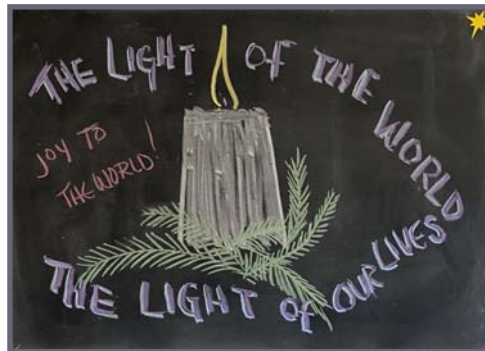 THE LIGHT OF THE WORLD
JOY TO
THE WORLD!
THE LIGHT of OUR LIVES